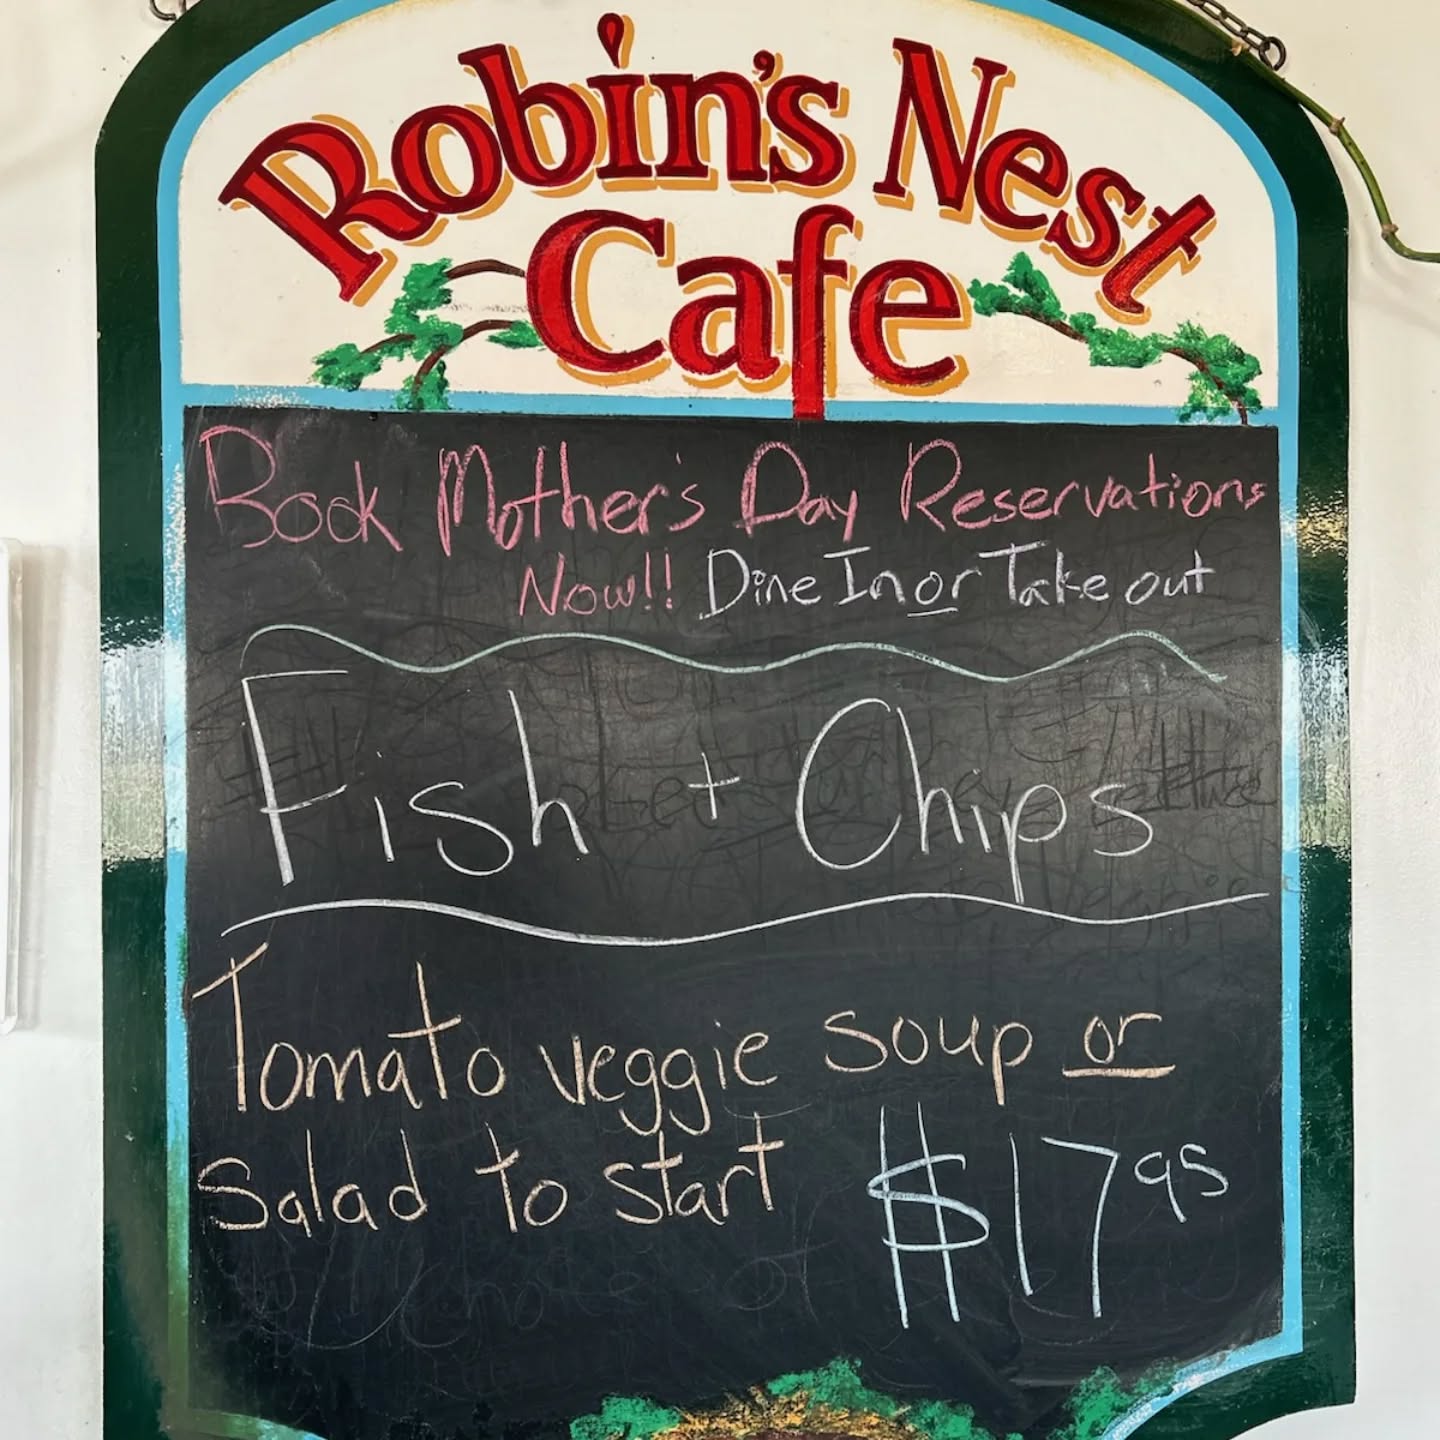 Robin's Nest
Cafe
Book Mother's Day Reservations
Now!! Dine In or Take out
Fish + Chips
Tomato veggie soup or
Salad to start $17.95